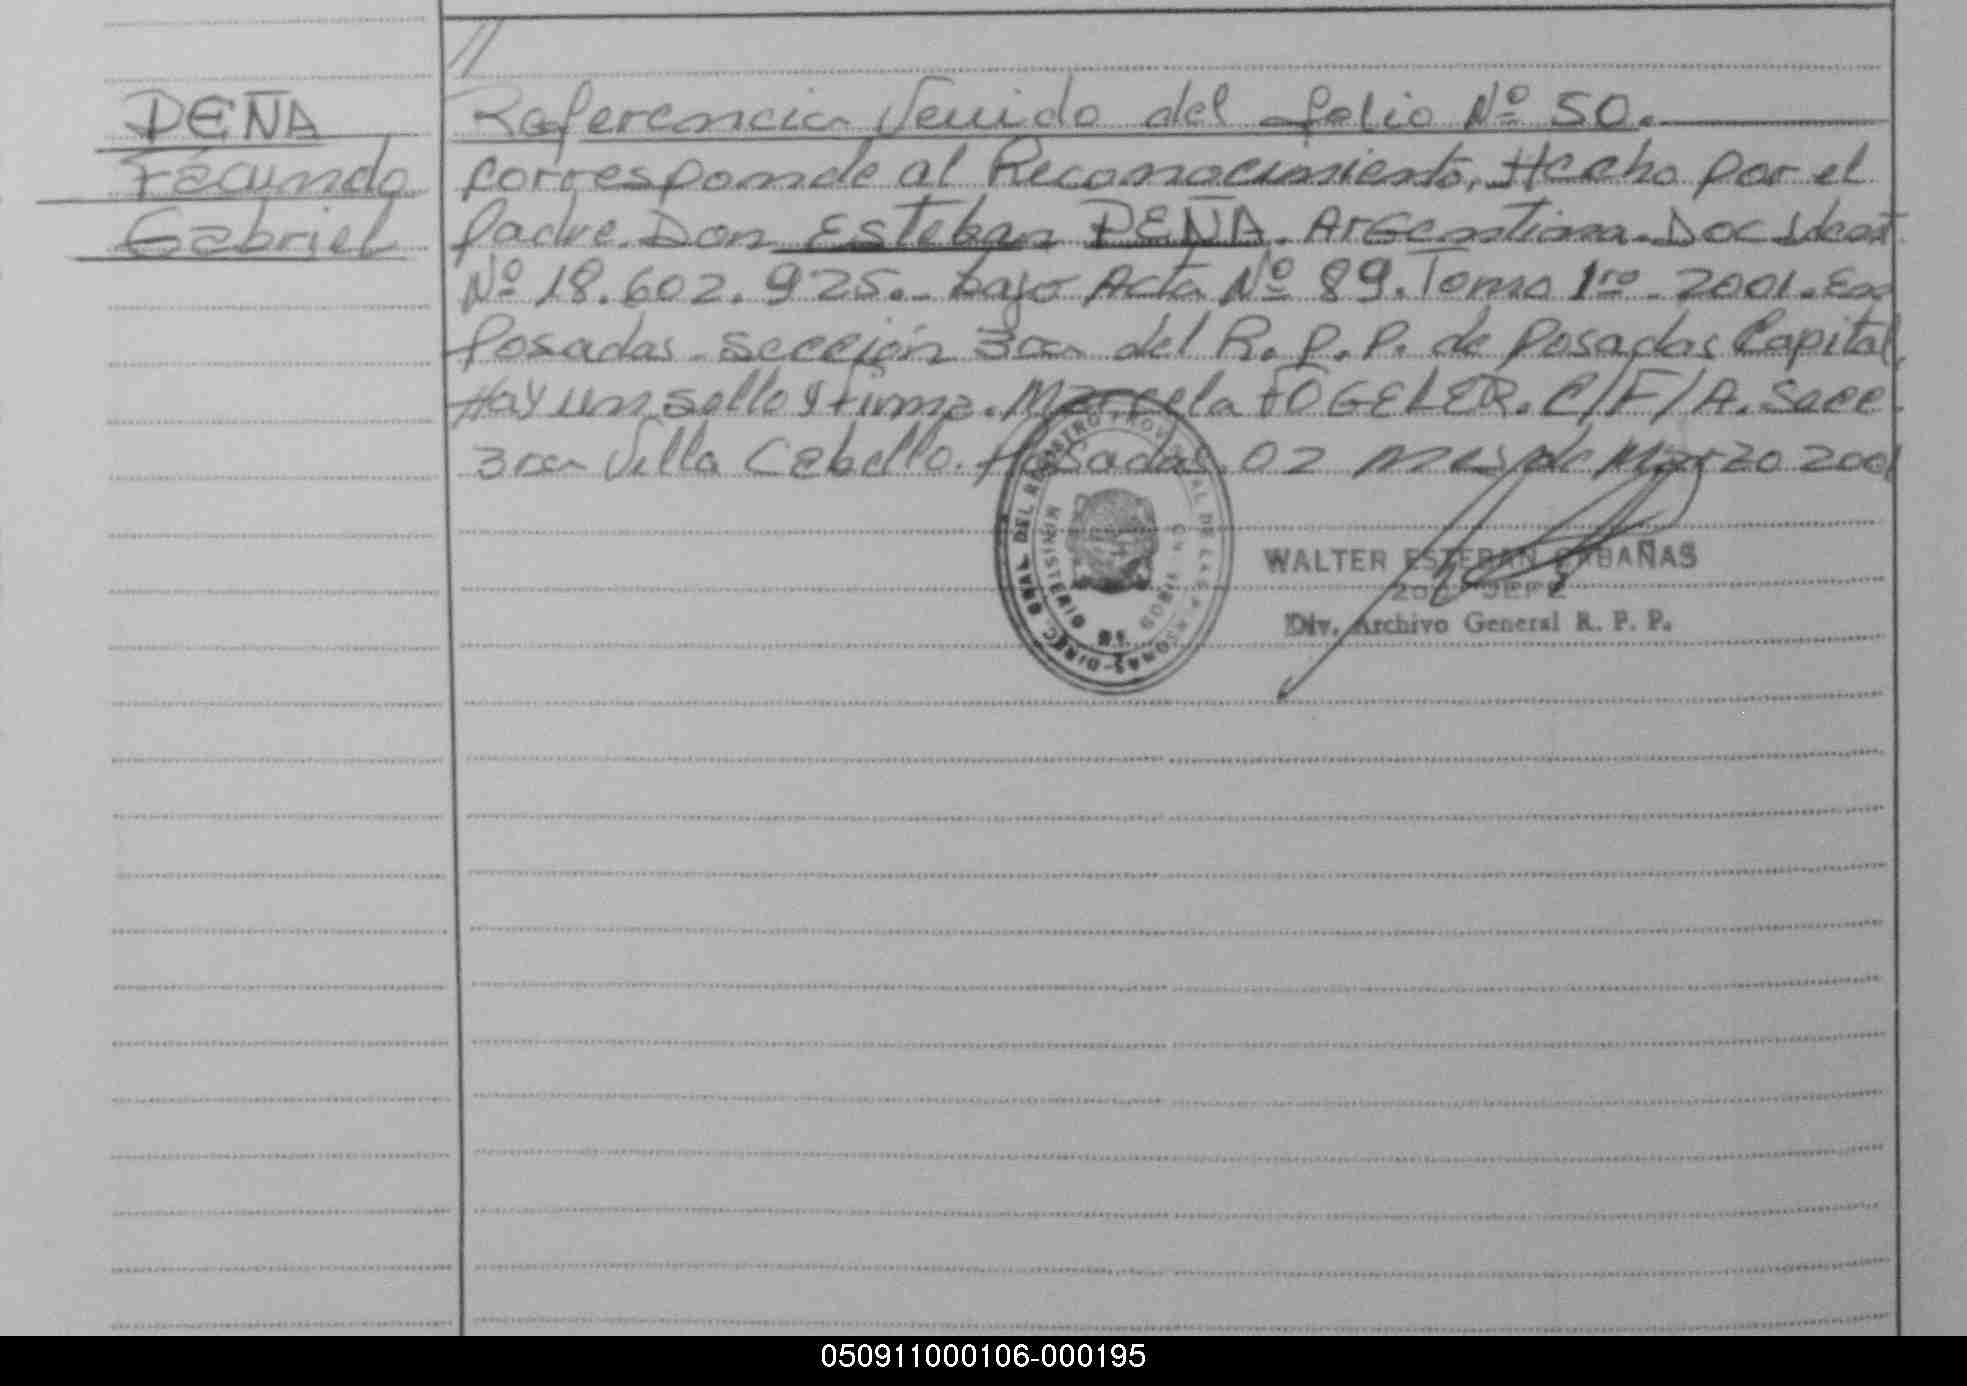 //
PEÑA
Facundo
Gabriel
Referencia Venido del folio Nº 50.
corresponde al Reconocimiento, Hecho por el
padre Don Esteban PEÑA. Argentino. Doc Ident
Nº 18.602.925.- bajo Acta Nº 89. Tomo 1ro - 2001. En
Posadas sección 3ra del R.P.P. de Posadas Capital,
Hay un sello y firma. Marcela FOGELER. C/F/A. Secc.
3ra Villa Cabello. Posadas, 02 mes de Marzo 2001
DIREC. GRAL. DEL REGISTRO PROVINCIAL DE LAS PERSONAS
MINISTERIO DE GOBIERNO
WALTER ESTEBAN CABAÑAS
2do JEFE
Div. Archivo General R. P. P.
050911000106-000195